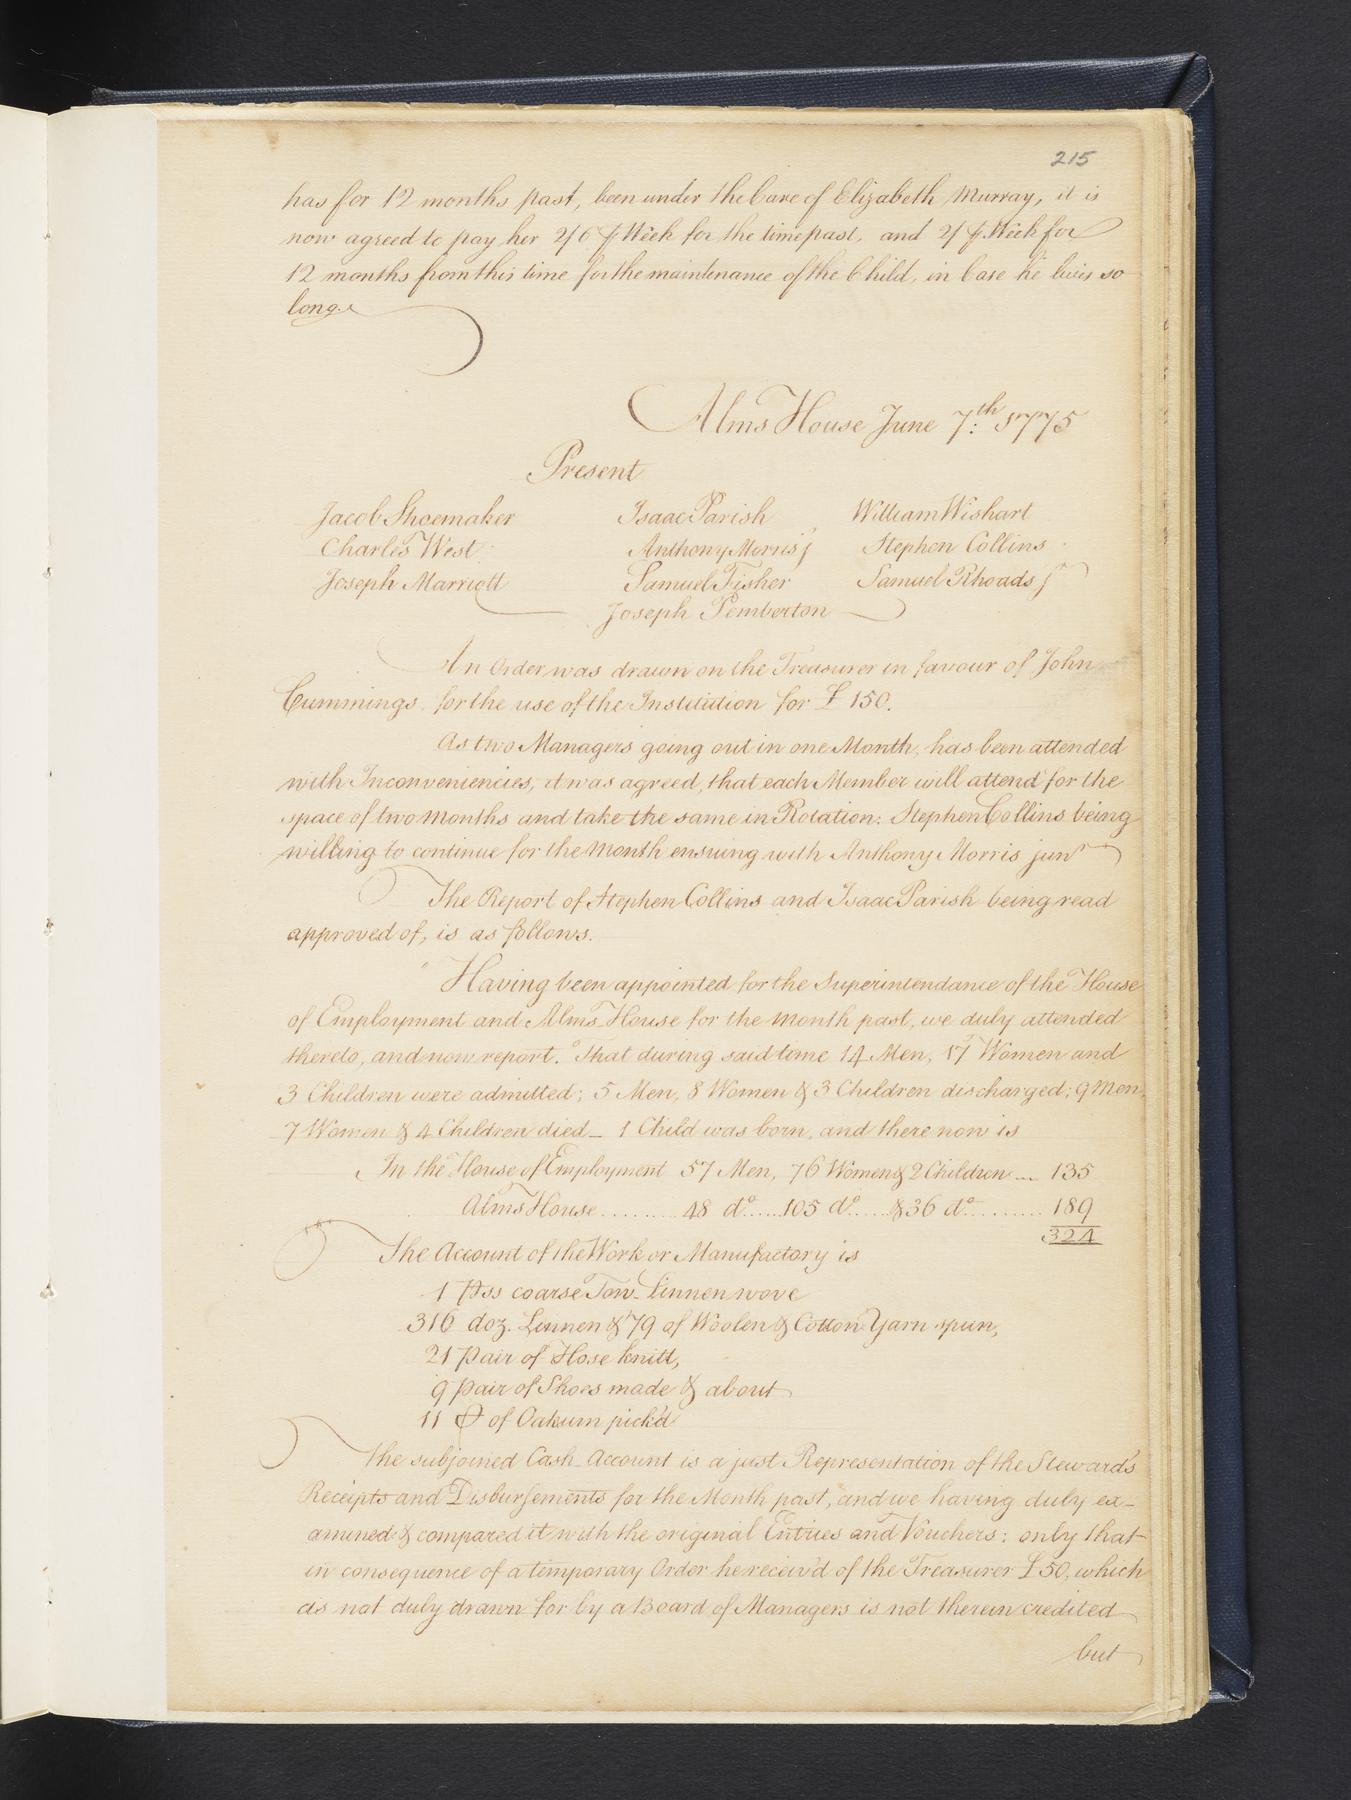 215
has for 12 months past, been under the Care of Elizabeth Murray, it is
now agreed to pay her 2/6 ⅌ Week for the time past, and 2/ ⅌ Week for
12 months from this time for the maintenance of the Child, in Case he lives so
long.
Alms House June 7:th 1775
Present
Jacob Shoemaker Isaac Parish William Wishart
Charles West Anthony Morris j Stephen Collins
Joseph Marriott Samuel Fisher Samuel Rhoads jr
Joseph Pemberton
An Order was drawn on the Treasurer in favour of John
Cummings for the use of the Institution for £ 150.
As two Managers going out in one Month, has been attended
with Inconveniencies, it was agreed, that each Member will attend for the
space of two Months and take the same in Rotation: Stephen Collins being
willing to continue for the Month ensuing with Anthony Morris junr
The Report of Stephen Collins and Isaac Parish being read
approved of, is as follows.
" Having been appointed for the Superintendance of the House
of Employment and Alms House for the Month past, we duly attended
thereto, and now report. That during said time 14 Men, 17 Women and
3 Children were admitted; 5 Men, 8 Women & 3 Children discharged; 9 Men,
7 Women & 4 Children died_ 1 Child was born, and there now is
In the House of Employment 57 Men, 76 Women & 2 Children ... 135
Alms House ........ 48 do.....105 do.....& 36 do......... 189
324
The Account of the Work or Manufactory is
1 Pss coarse Tow-Linnen wove
316 doz. Linnen & 79 of Woolen & Cotton Yarn spun,
21 Pair of Hose knitt,
9 Pair of Shoes made & about
11 of Oakum pick'd
The subjoined Cash Account is a just Representation of the Steward's
Receipts and Disbursements for the Month past, and we having duly ex-
amined & compared it with the original Entries and Vouchers: only that
in consequence of a temporary Order he receiv'd of the Treasurer £50, which
as not duly drawn for by a Board of Managers is not therein credited
but